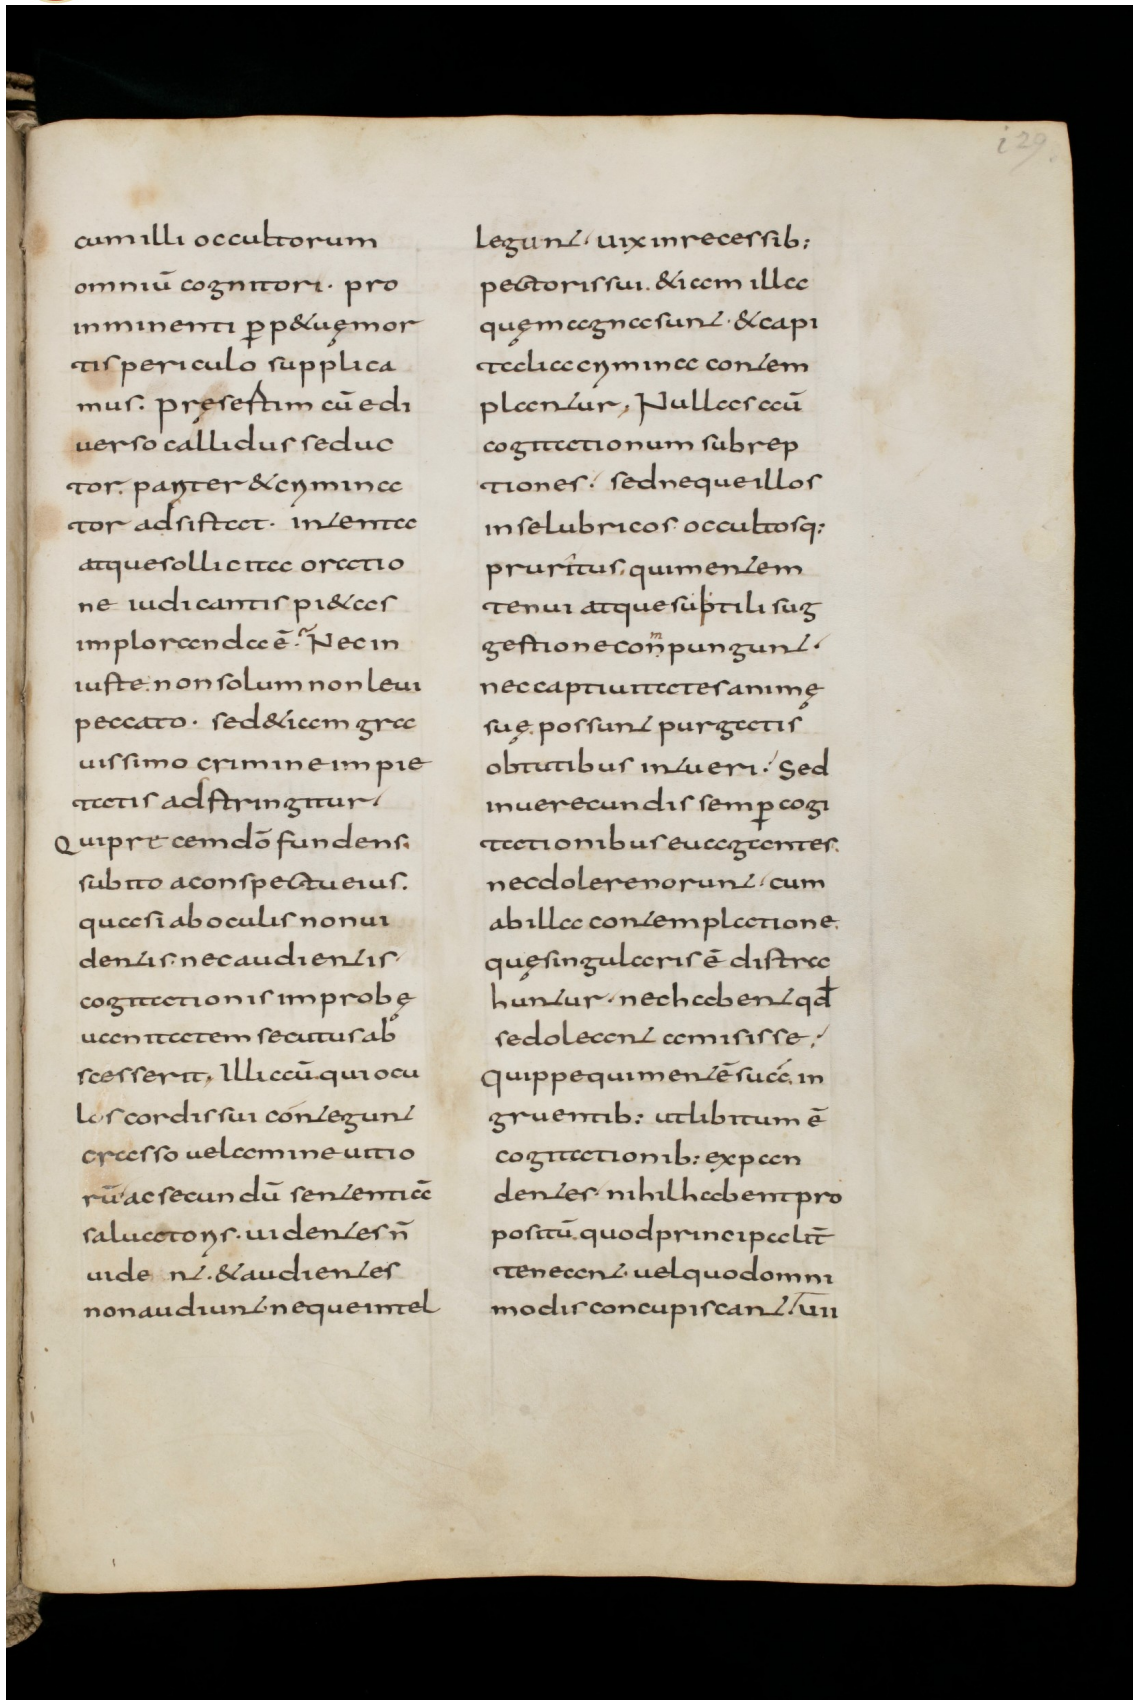 i29.
cum illi occultorum
omniū cognitori· pro
inminenti ꝑp&uęmor
tis periculo supplica
mus. Pręsertim cū edi
uerso callidus seduc
tor. pariter & crimina
tor adsistat· intenta
atque sollicita oratio
ne iudicantis pi&as
imploranda ē. Nec in
iuste. non solum non leui
peccato· sed &iam gra
uissimo crimine impie
tatis adstringitur.
Qui precem dō fundens.
subito a conspectu eius.
quasi ab oculis non ui
dentis· nec audientis·
cogitationis improbę
uanitatem secutus ab
scesserit. Illi cū qui ocu
los cordis sui contegunt
crasso uelamine uitio
rū ac secundū sententiā
saluatoris· uidentes n̄
uident·&audientes
non audiunt· neque intel
legunt· uix in recessib:
pectoris sui. &iam illa
quę magna sunt·&capi
talia crimina contem
plantur, Nullas eā
cogitationum subrep
tiones· sed neque illos
inse lubricos· occultosq:
pruritus, qui mentem
tenui atque subtili sug
gestione conpungunt·
nec captiuitates animę
suę. possunt purgatis
obtutibus intueri. Sed
inuerecundis semꝑ cogi
tationibus euagantes.
nec dolere norunt· cum
ab illa contemplatione.
quę singularis ē distra
huntur· nec habent qđ
se doleant amisisse.
Quippe qui mentē suā. in
gruentib: ut libitum ē
cogitationib: expan
dentes· nihil habent pro
positū. quod principalit̄
teneant· uel quod omni
modis concupiscant. uii